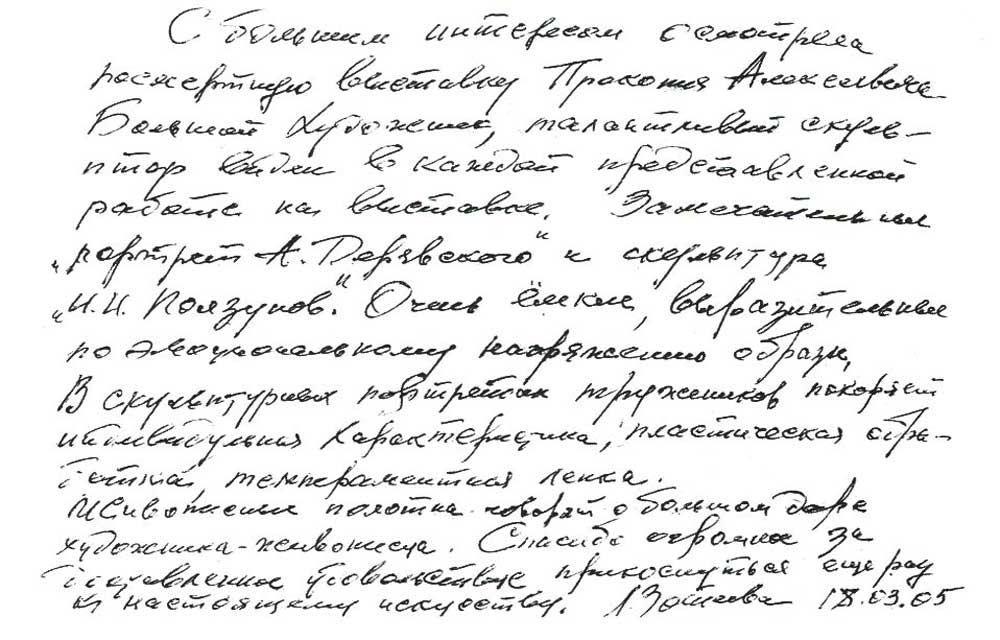 С большим интересом осмотрела
выставку Прокопия Алексеевича
Большой художник, талантливый скуль-
птор виден в каждой представленной
работе на выставке. Замечательны
„портрет А. Дерявского“ и скульптура
„И.И. Ползунов“. Очень ёмкие, выразительные
по эмоциональному напряжению образы,
В скульптурных портретах тружеников покоряет
индивидуальная характеристика, пластическая обра-
ботка, темпераментная лепка.
Живописные полотна говорят о большом даре
художника-живописца. Спасибо огромное за
доставленное удовольствие прикоснуться еще раз
к настоящему искусству. 18.03.05